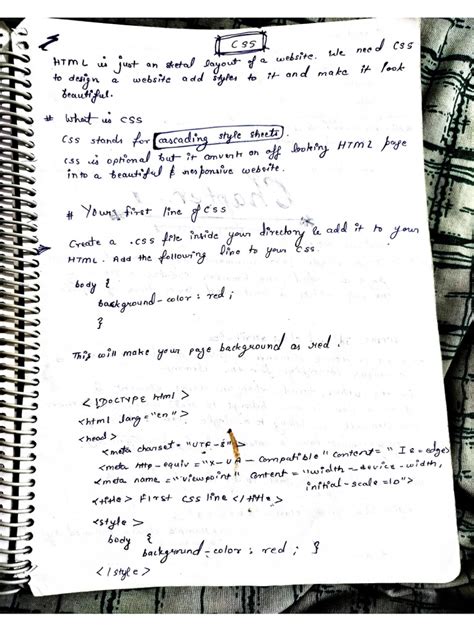 CSS
HTML is just an sketal layout of a website. We need CSS
to design a website add styles to it and make it look
beautiful.
# What is CSS
CSS stands for cascading style sheets.
CSS is optional but it converts an off looking HTML page
into a beautiful & responsive website.
# Yours first line of CSS
Create a .css file inside your directory & add it to your
HTML. Add the following line to your CSS.
body {
background-color: red;
}
This will make your page background as red.
<!DOCTYPE html>
<html lang="en">
<head>
<meta charset="UTF-8">
<meta http-equiv="X-UA-Compatible" content="IE=edge>
<meta name="viewpoint" content="width-device-width,
initial-scale=1.0">
<title> First CSS line </title>
<style>
body {
background-color: red; }
</style>